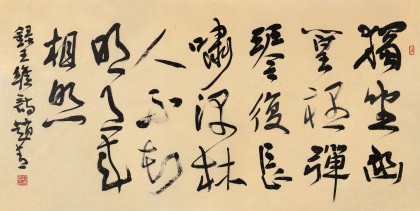 獨坐幽
篁裡彈
琴復長
嘯深林
人不知
明月來
相照
錄王維詩趙